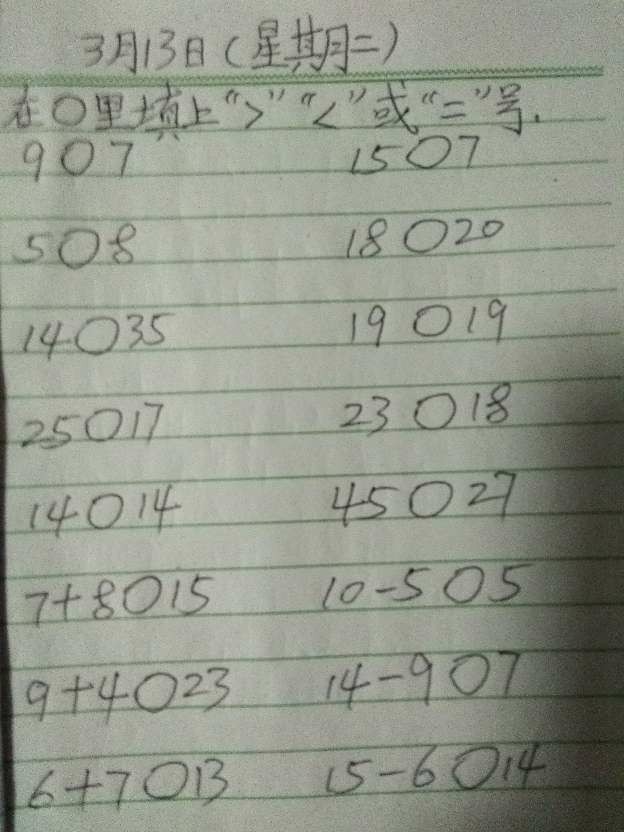 3月13日(星期二)
在○里填上“>”“<”或“=”号.
9○7 15○7
5○8 18○20
14○35 19○19
25○17 23○18
14○14 45○27
7+8○15 10-5○5
9+4○23 14-9○7
6+7○13 15-6○14